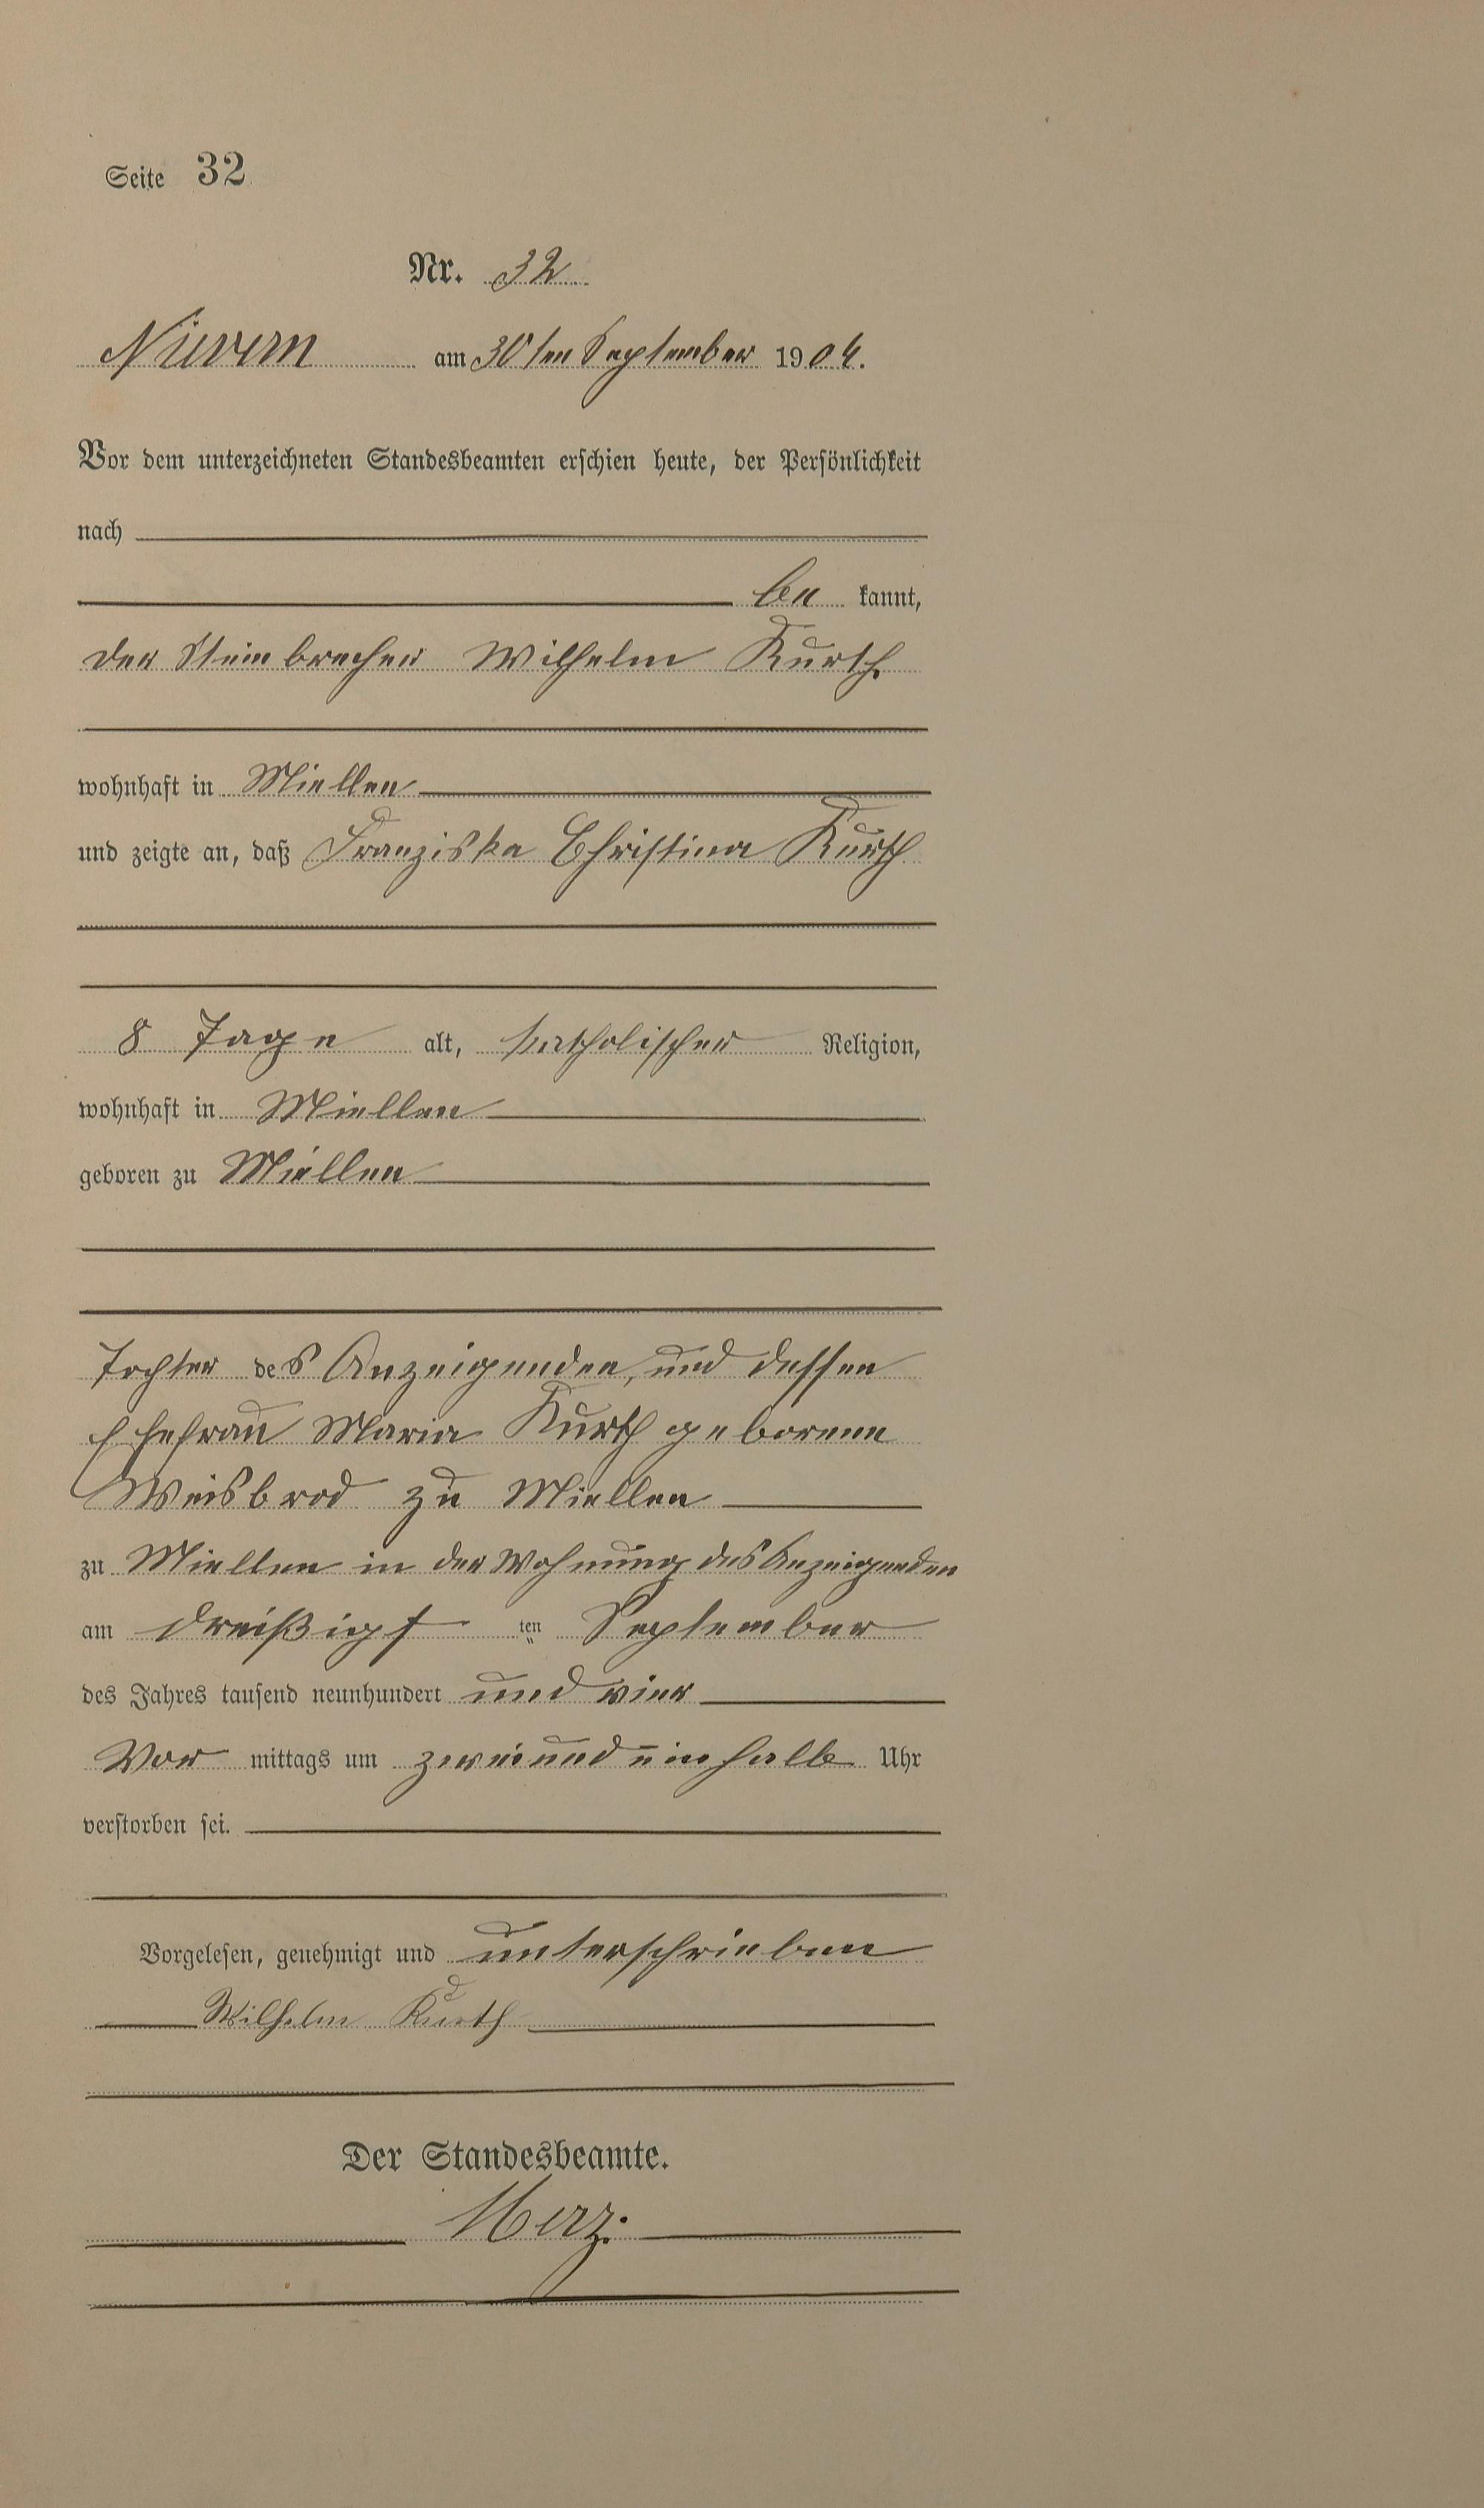 Seite 32
Nr. 32
Nievern am 30ten September 1904.
Vor dem unterzeichneten Standesbeamten erschien heute, der Persönlichkeit
nach
be kannt,
der Steinbrecher Wilhelm Kurth
wohnhaft in Miellen
und zeigte an, daß Franziska Christina Kurth
8 Tage alt, katholischer Religion,
wohnhaft in Miellen
geboren zu Miellen
Tochter des Anzeigenden, und dessen
Ehefrau Maria Kurth geborenen
Weisbrod zu Miellen
zu Miellen in der Wohnung des Anzeigenden
am dreißigst ten September
des Jahres tausend neunhundert und vier
Vor mittags um zweiundeinhalb Uhr
verstorben sei.
Vorgelesen, genehmigt und unterschrieben
Wilhelm Kurth
Der Standesbeamte.
Merz.